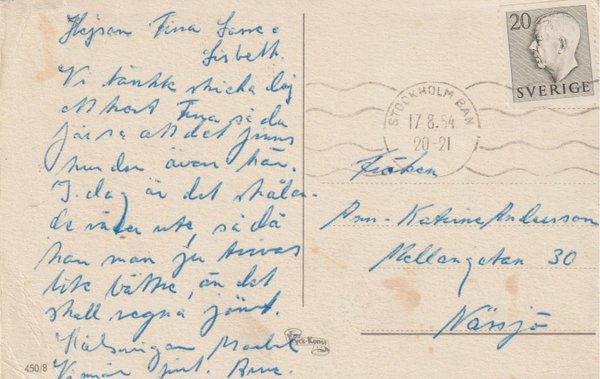 Hejsan Fina Söne o
Lisbeth.
Vi tänkte skicka dig
ett kort Fina så du
får se att det finns
hundar även här.
I dag är det strålan-
de väder ute, så då
kan man ju trivas
lite bättre, än det
skall regna jämt.
Hälsningar
Vi mår
450/8
STOCKHOLM BAN
17.8.54
20-21
20
SVERIGE
Fröken
Ann-Katrine Andersson
Kellangatan 30
Nässjö